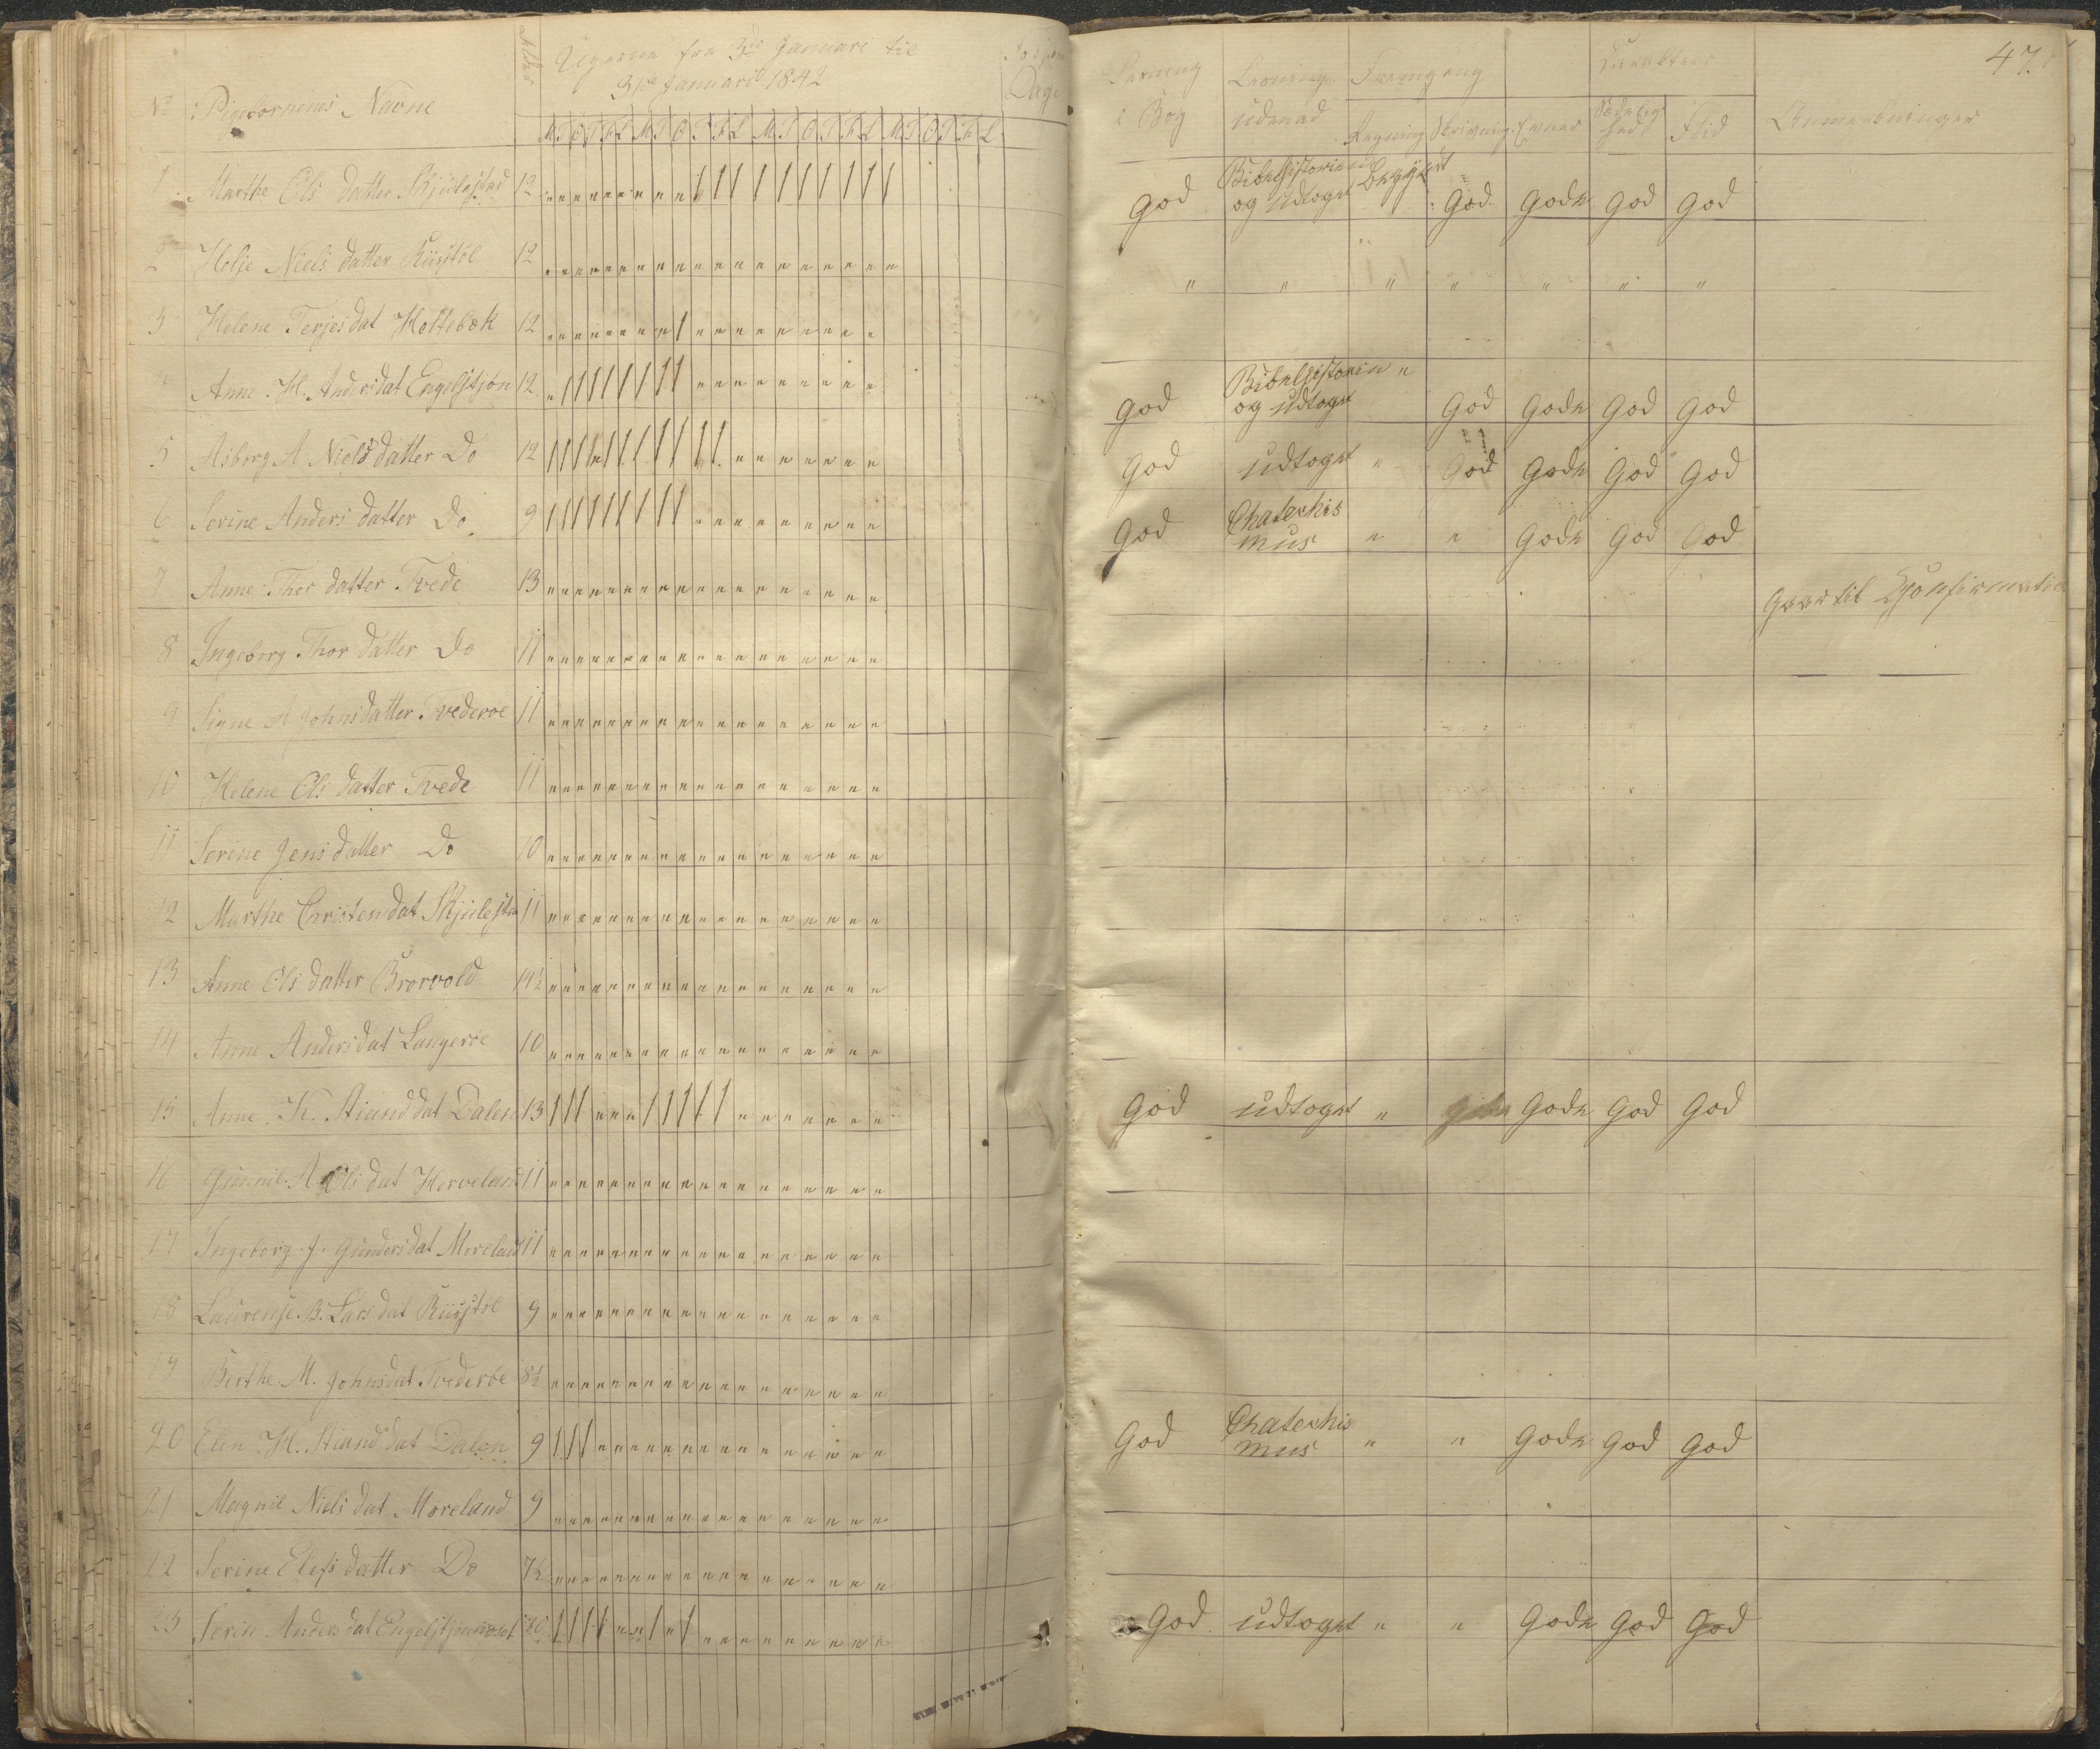 Alder
Ugerne fra 3die Januari til
31te Januari 1842
Dage
No Pigebørnenes Navne
M T O T F L M T O T F L M T O T F L M T O T F L
1 Marthe Ols datter Skjulestad 12
2 Helje Niels datter Riisstøl 12
3 Helene Terjesdat Holtebæk 12
4 Anne H. Andersdat Engelstjøn 12
5 Asborg A Niels datter Do 12
6 Serine Anders datter Do 9
7 Anne Thor datter Tvede 13
8 Ingeborg Thor datter Do 11
9 Signe A Johnsdatter Tvederøe 11
10 Helene Ols datter Tvede 11
11 Serine Jens datter Do 10
12 Marthe Christendat Skjulesta 11
13 Anne Ols datter Brorvold 14½
14 Anne Andersdat Langerøe 10
15 Anne K. Aianddat Dalen 13
16 Gunnil A Olsdat Herveland 11
17 Ingeborg J. Gundersdat Moreland 11
18 Laurense B. Larsdat Riisstøl 9
19 Berthe M. Johnsdat Tvederøe 8½
20 Elen H. Aianddat Dalen 9
21 Magnil Nielsdat Moreland 9
22 Serine Elefs datter Do 7½
23 Serin Andersdat Engelstjøn 10
47
Læsning i Bog
Læsning udenad
Fremgang
Regning Skrivning Evner
Karakter
Sædelighed
Flid
Anmerkninger
God Bibelhistorien og Udtoget Begyndt God Gode God God
" " " " " " "
God Bibelhistorien og Udtoget " God Gode God God
God Udtoget " God Gode God God
God Chatechismus " " Gode God God
Gaar til Konfirmation
God Udtoget " Gode God God
God Chatechismus " " Gode God God
God Udtoget " " Gode God God